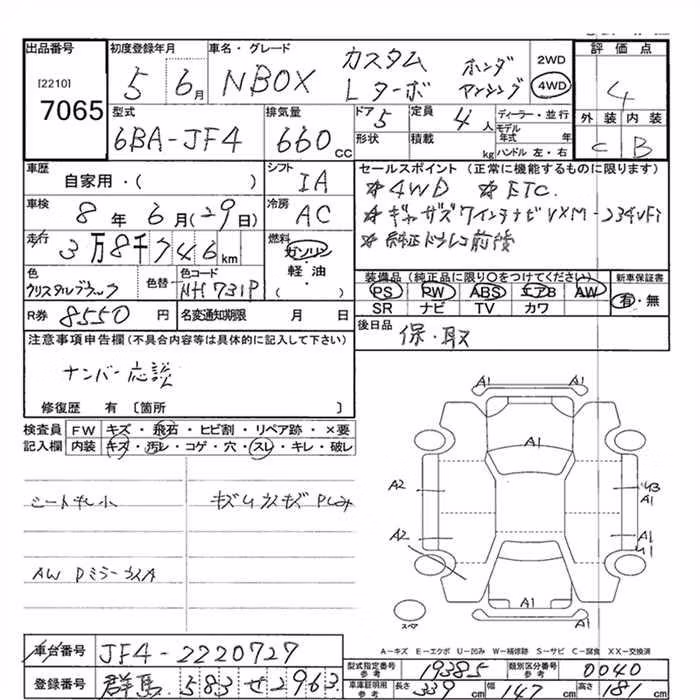 出品番号 初度登録年月 車名・グレード 評価点
[2210] 7065
5 6月 NBOX カスタム Lターボ ホンダ 2WD 4WD 4
型式 排気量 ドア 定員 ディーラー・並行 外装 内装
6BA-JF4 660cc 5 4人 モデル年式 年 C B
形状 積載 kg ハンドル 左・右
車歴 シフト セールスポイント (正常に機能するものに限ります)
自家用・( ) IA ☆4WD ☆ETC.
車検 冷房
8年6月(29日) AC
走行 燃料 ☆純正ドラレコ前後
3万8千746km ガソリン・軽油・( )
色 色替 色コード 装備品(純品に限り○をつけてください) 新車保証書
クリスタルブラック NH731P PS PW ABS エアB AW 有・無
SR ナビ TV カワ
R券 8550円 名変通知期限 月 日 後日品
保・取
注意事項申告欄(不具合内容等は具体的に記入して下さい)
ナンバー応談
修復歴 有 〔箇所 〕
検査員 FW キズ・飛石・ヒビ割・リペア跡・×要
記入欄 内装 キズ・汚レ・コゲ・穴・スレ・キレ・破レ
A1 A1
A1
A2 U3
A1
A2 U1
A1
A1
スペア
A-キズ E-エクボ U-凹み W-補修跡 S-サビ C-腐食 XX-交換済
車台番号 JF4-2220727
登録番号 群馬 583 せ 2963
型式指定番号 参考 19385 類別区分番号 参考 0040
車庫証明用 参考 長さ 339cm 幅 147cm 高さ 181cm